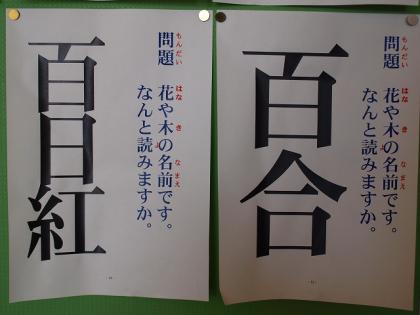 問題
もんだい
花や木の名前です。
はな き なまえ
なんと読みますか。
よ
百合
問題
もんだい
花や木の名前です。
はな き なまえ
なんと読みますか。
よ
百日紅